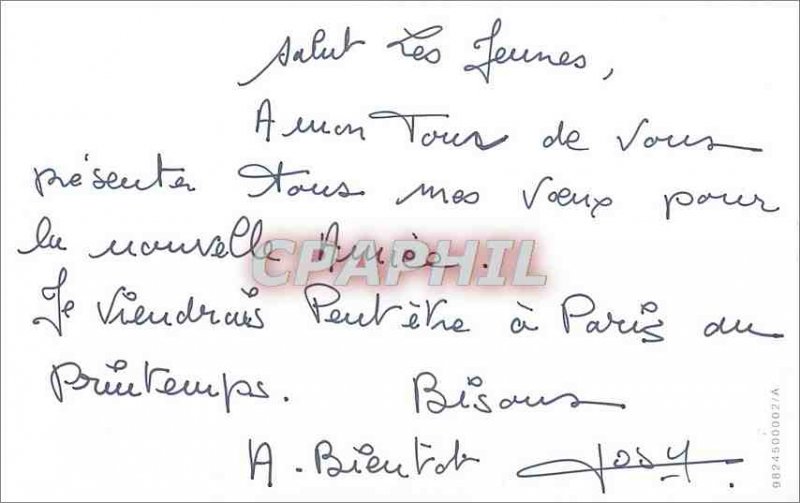 Salut Les Jeunes,
A mon Tour de vous
présenter tous mes vœux pour
la nouvelle Année.
CPAPHIL
Je viendrais Peut être à Paris au
Printemps. Bisous
A. Bientot Josy
9824500002/A